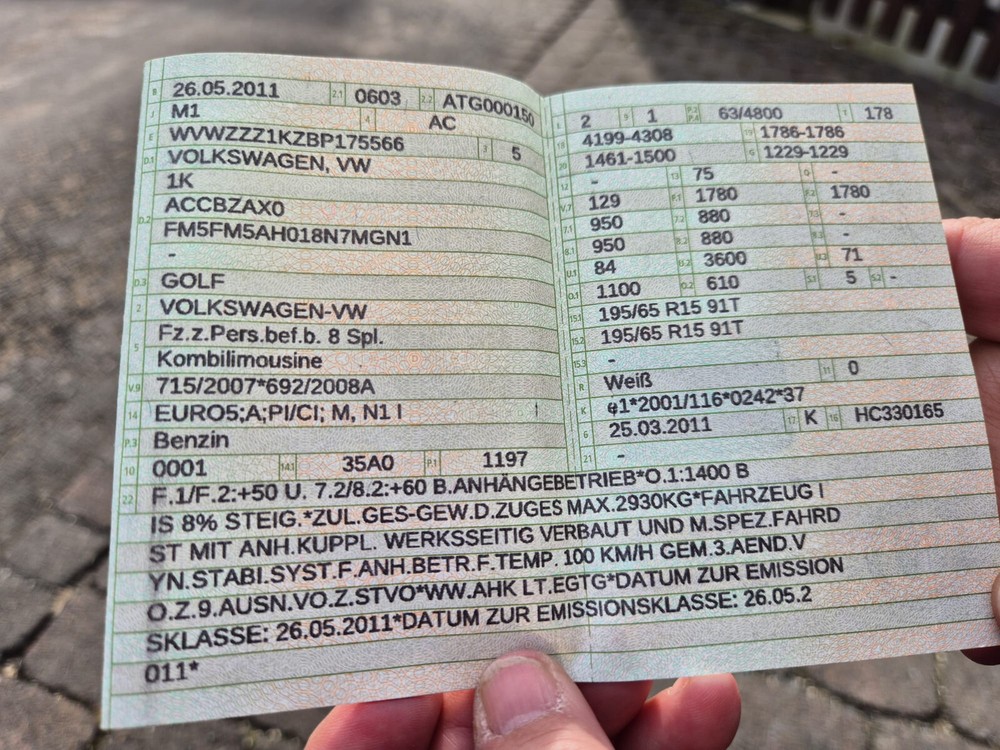 B 26.05.2011 2.1 0603 2.2 ATG000150
J M1 4 AC
E WVWZZZ1KZBP175566 3 5
D.1 VOLKSWAGEN, VW
1K
D.2 ACCBZAX0
FM5FM5AH018N7MGN1
-
D.3 GOLF
2 VOLKSWAGEN-VW
5 Fz.z.Pers.bef.b. 8 Spl.
Kombilimousine
V.9 715/2007*692/2008A
14 EURO5;A;PI/CI; M, N1 I
P.3 Benzin
10 0001 14.1 35A0 P.1 1197
L 2 9 1 P.2 P.4 63/4800 T 178
18 4199-4308 19 1786-1786
20 1461-1500 G 1229-1229
12 - 13 75 Q -
V.7 129 F.1 1780 F.2 1780
7.1 950 7.2 880 7.3 -
8.1 950 8.2 880 8.3 -
U.1 84 U.2 3600 U.3 71
O.1 1100 O.2 610 S.1 5 S.2 -
15.1 195/65 R15 91T
15.2 195/65 R15 91T
15.3 -
R Weiß 11 0
K e1*2001/116*0242*37
6 25.03.2011 17 K 16 HC330165
21 -
22 F.1/F.2:+50 U. 7.2/8.2:+60 B.ANHÄNGEBETRIEB*O.1:1400 B
IS 8% STEIG.*ZUL.GES-GEW.D.ZUGES MAX.2930KG*FAHRZEUG I
ST MIT ANH.KUPPL. WERKSSEITIG VERBAUT UND M.SPEZ.FAHRD
YN.STABI.SYST.F.ANH.BETR.F.TEMP. 100 KM/H GEM.3.AEND.V
O.Z.9.AUSN.VO.Z.STVO*WW.AHK LT.EGTG*DATUM ZUR EMISSION
SKLASSE: 26.05.2011*DATUM ZUR EMISSIONSKLASSE: 26.05.2
011*